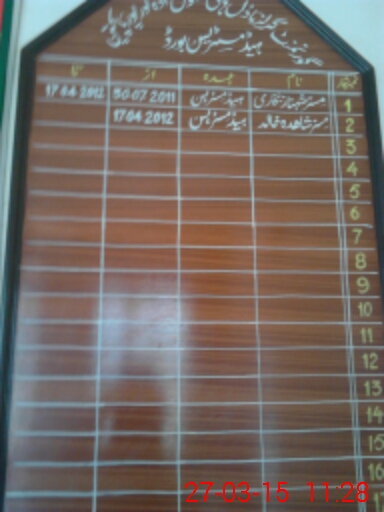 ہیڈ مسٹریس بورڈ
نمبر شمار نام عہدہ از تا
1 مسز شہناز بخاری ہیڈ مسٹریس 30.07.2011 17.04.2012
2 مسز شاھدہ خالد ہیڈ مسٹریس 17.04.2012
3
4
5
6
7
8
9
10
11
12
13
14
15
16
27-03-15 11:28